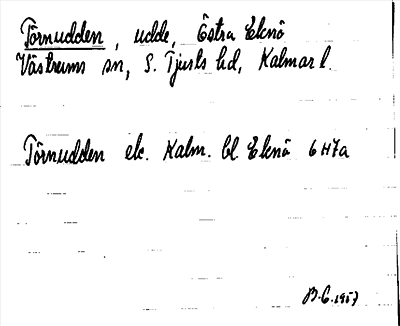 Törnudden, udde, Östra Eknö
Västrums sn, S. Tjusts hd, Kalmar l.
Törnudden ek. Kalm. bl Eknö 6 H 7a
B.G. 1957